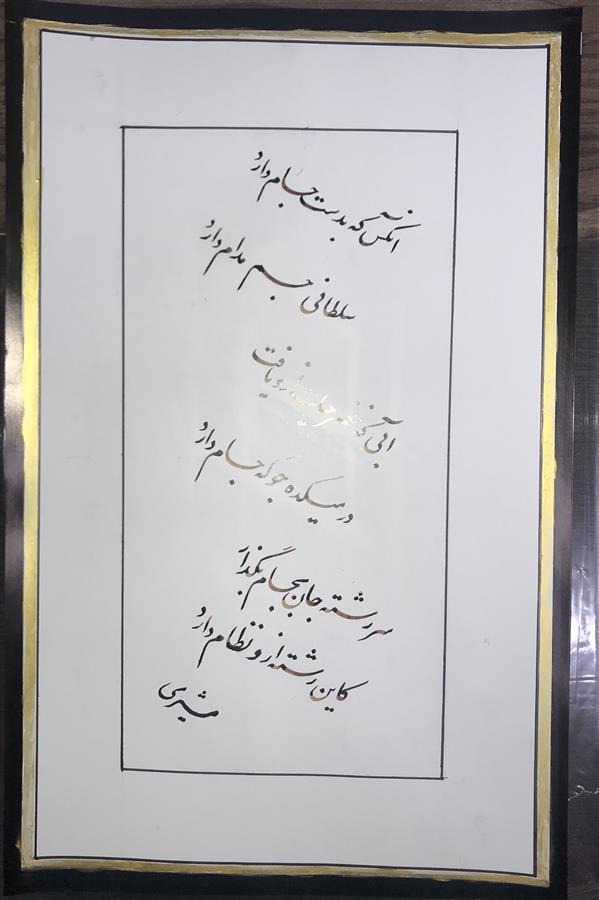 آنکس که بدست جام دارد
سلطانی جم مدام دارد
آبی که خضر حیات ازو یافت
در میکده جو که جام دارد
سررشته جان بجام بگذار
کاین رشته ازو نظام دارد